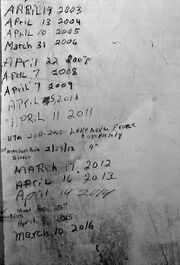 APRIL 19 2003
April 13 2004
April 10 2005
March 31 2006
April 22 2007
April 7 2008
April 7 2009
April 5, 2010
April 11 2011
2011-2012 Lake Never Froze
Completely
2/29/12 9"
March 17, 2012
April 14 2013
April 14 2014
April 8, 2015
March 10, 2016